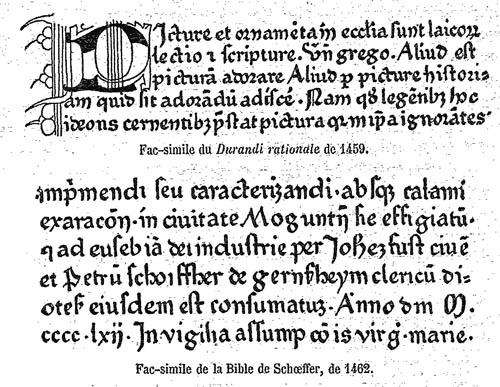 Picture et ornamētaīn ecclīa sunt laicorꝝ
lectio ⁊ scripture. Vn̄ grego. Aliud est
picturā adorare Aliud ꝑ picture histori-
am quid sit adorādū adiscē. Nam qd̄ legētibꝫ
ideons cernentibꝫ p̄stat pictura ignorātes
Fac-simile du Durandi rationale de 1459.
imp̄mendi seu caracterizandi · absqꝫ calami
exaracōn̄ · in ciuitate Moguntn̄ sic effigiatū ·
⁊ ad eusebiā dei industrie per Johēꝫ fust ciuē
et Petrū schoiffher de gernsheym clericū di-
otes̄ eiusdem est consumatuꝫ · Anno dm̄ M.
cccc · lxij · In vigilia assumpcōis virḡ · marie ·
Fac-simile de la Bible de Schœffer, de 1462.